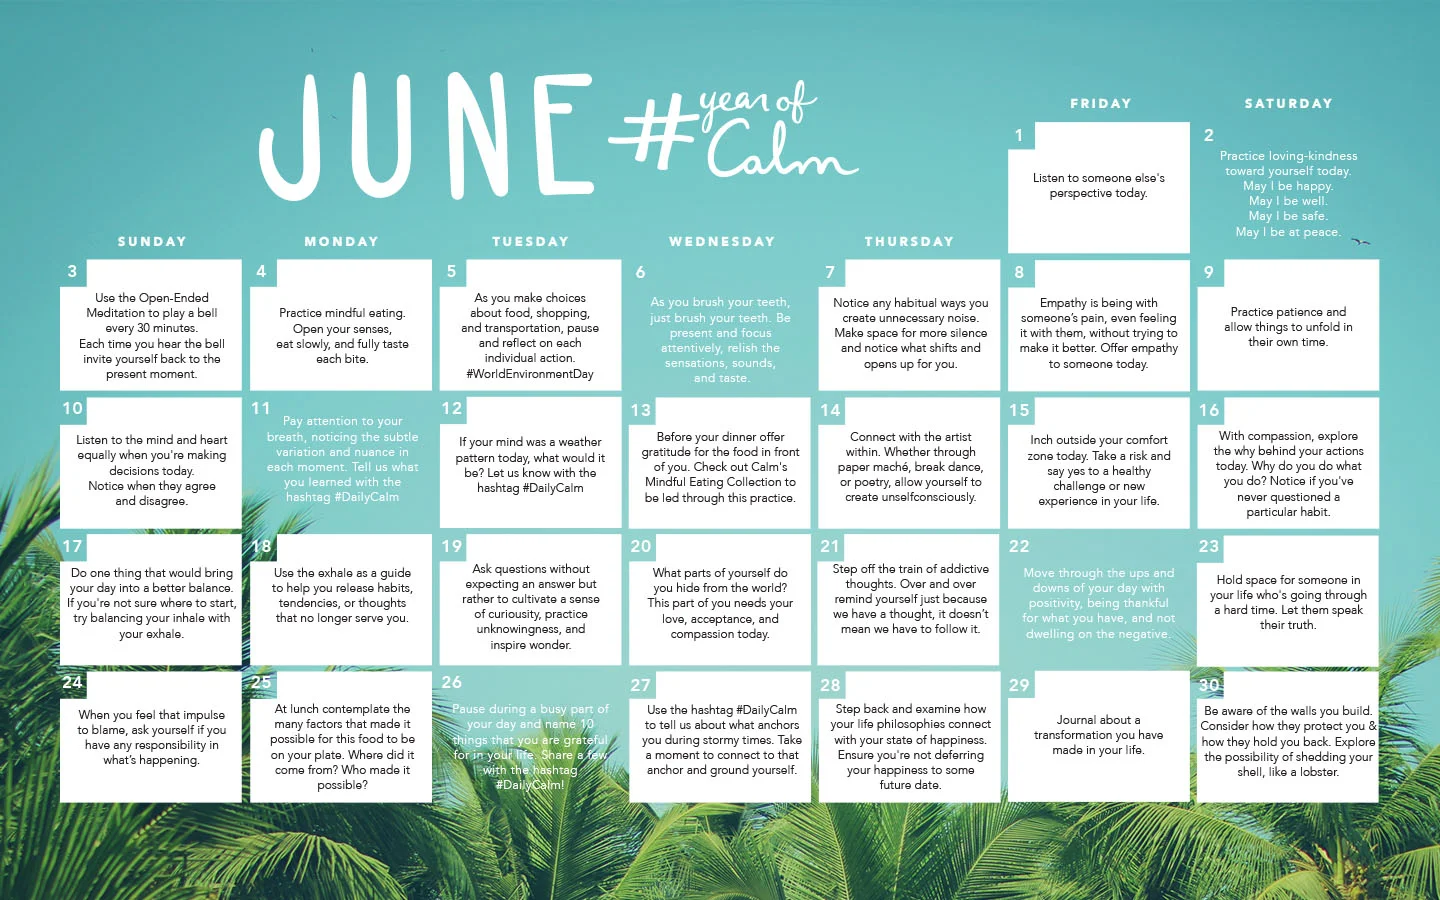 JUNE
#year of
Calm
FRIDAY
SATURDAY
1
Listen to someone else's
perspective today.
2
Practice loving-kindness
toward yourself today.
May I be happy.
May I be well.
May I be safe.
May I be at peace.
SUNDAY
MONDAY
TUESDAY
WEDNESDAY
THURSDAY
3
Use the Open-Ended
Meditation to play a bell
every 30 minutes.
Each time you hear the bell
invite yourself back to the
present moment.
4
Practice mindful eating.
Open your senses,
eat slowly, and fully taste
each bite.
5
As you make choices
about food, shopping,
and transportation, pause
and reflect on each
individual action.
#WorldEnvironmentDay
6
As you brush your teeth,
just brush your teeth. Be
present and focus
attentively, relish the
sensations, sounds,
and taste.
7
Notice any habitual ways you
create unnecessary noise.
Make space for more silence
and notice what shifts and
opens up for you.
8
Empathy is being with
someone's pain, even feeling
it with them, without trying to
make it better. Offer empathy
to someone today.
9
Practice patience and
allow things to unfold in
their own time.
10
Listen to the mind and heart
equally when you're making
decisions today.
Notice when they agree
and disagree.
11
Pay attention to your
breath, noticing the subtle
variation and nuance in
each moment. Tell us what
you learned with the
hashtag #DailyCalm
12
If your mind was a weather
pattern today, what would it
be? Let us know with the
hashtag #DailyCalm
13
Before your dinner offer
gratitude for the food in front
of you. Check out Calm's
Mindful Eating Collection to
be led through this practice.
14
Connect with the artist
within. Whether through
paper maché, break dance,
or poetry, allow yourself to
create unselfconsciously.
15
Inch outside your comfort
zone today. Take a risk and
say yes to a healthy
challenge or new
experience in your life.
16
With compassion, explore
the why behind your actions
today. Why do you do what
you do? Notice if you've
never questioned a
particular habit.
17
Do one thing that would bring
your day into a better balance.
If you're not sure where to start,
try balancing your inhale with
your exhale.
18
Use the exhale as a guide
to help you release habits,
tendencies, or thoughts
that no longer serve you.
19
Ask questions without
expecting an answer but
rather to cultivate a sense
of curiousity, practice
unknowingness, and
inspire wonder.
20
What parts of yourself do
you hide from the world?
This part of you needs your
love, acceptance, and
compassion today.
21
Step off the train of addictive
thoughts. Over and over
remind yourself just because
we have a thought, it doesn't
mean we have to follow it.
22
Move through the ups and
downs of your day with
positivity, being thankful
for what you have, and not
dwelling on the negative.
23
Hold space for someone in
your life who's going through
a hard time. Let them speak
their truth.
24
When you feel that impulse
to blame, ask yourself if you
have any responsibility in
what's happening.
25
At lunch contemplate the
many factors that made it
possible for this food to be
on your plate. Where did it
come from? Who made it
possible?
26
Pause during a busy part of
your day and name 10
things that you are grateful
for in your life. Share a few
with the hashtag
#DailyCalm!
27
Use the hashtag #DailyCalm
to tell us about what anchors
you during stormy times. Take
a moment to connect to that
anchor and ground yourself.
28
Step back and examine how
your life philosophies connect
with your state of happiness.
Ensure you're not deferring
your happiness to some
future date.
29
Journal about a
transformation you have
made in your life.
30
Be aware of the walls you build.
Consider how they protect you &
how they hold you back. Explore
the possibility of shedding your
shell, like a lobster.